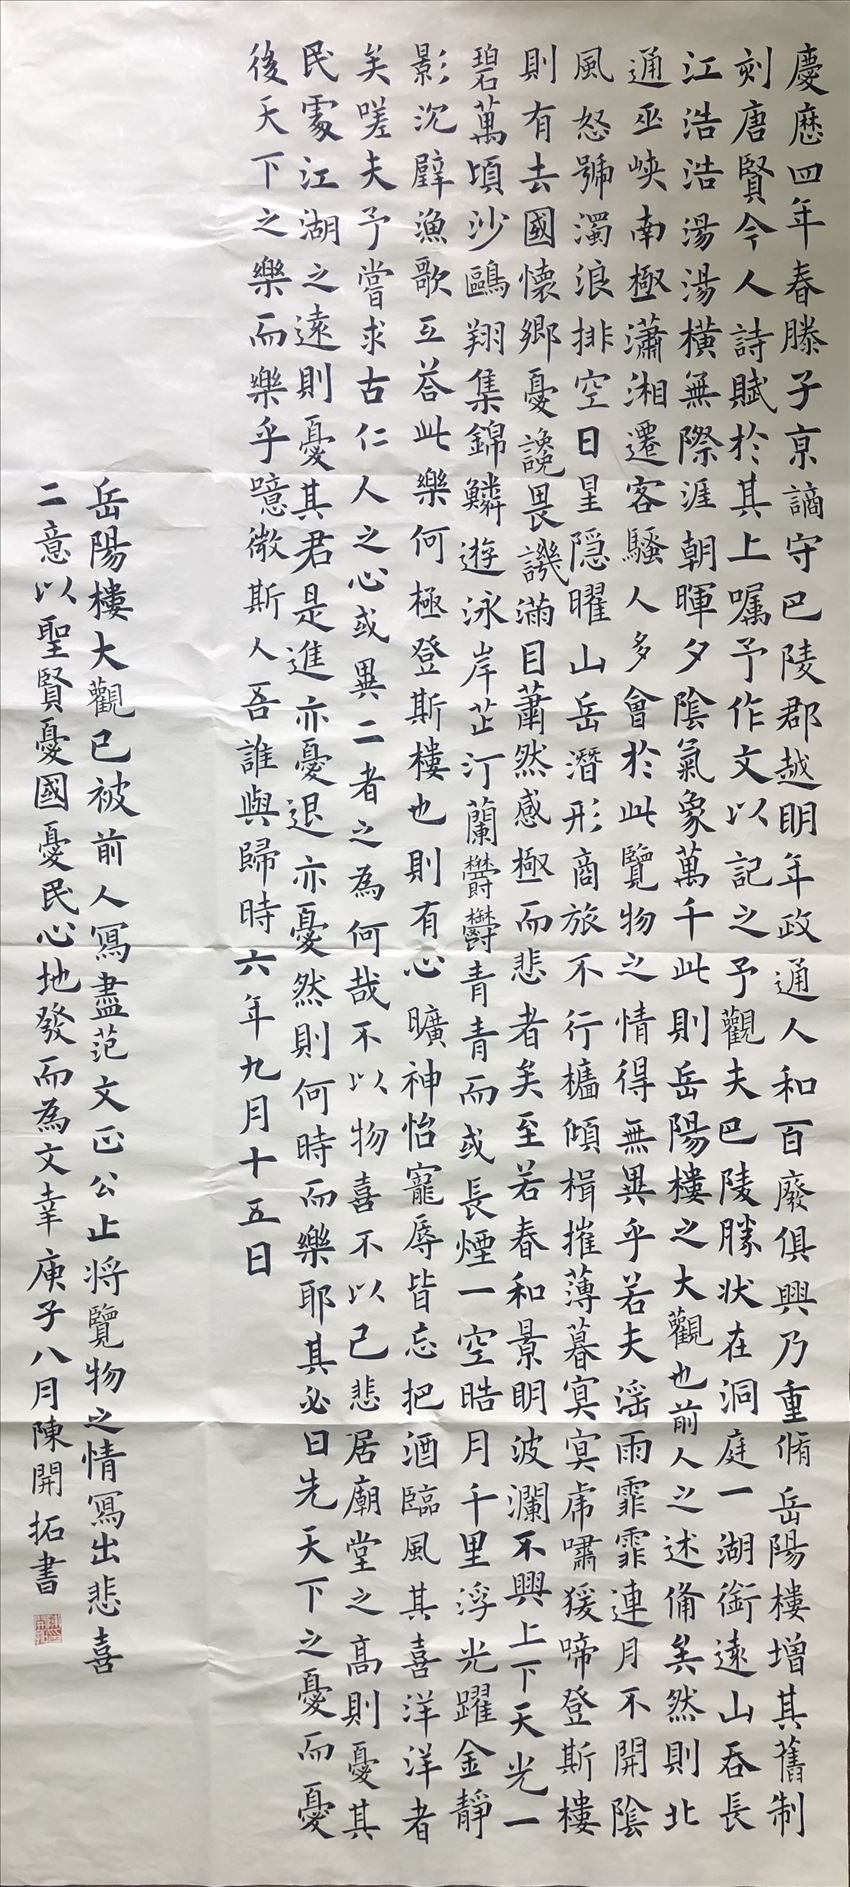 慶歷四年春滕子京謫守巴陵郡越明年政通人和百廢俱興乃重脩岳陽樓增其舊制
刻唐賢今人詩賦於其上嘱予作文以記之予觀夫巴陵勝状在洞庭一湖銜遠山吞長
江浩浩湯湯橫無際涯朝暉夕陰氣象萬千此則岳陽樓之大觀也前人之述備矣然則北
通巫峡南極瀟湘遷客騷人多會於此覽物之情得無異乎若夫滛雨霏霏連月不開陰
風怒號濁浪排空日星隠曜山岳潛形商旅不行檣傾楫摧薄暮冥冥虎嘯猨啼登斯樓
則有去國懷鄉憂讒畏譏滿目蕭然感極而悲者矣至若春和景明波瀾不興上下天光一
碧萬頃沙鷗翔集錦鱗遊泳岸芷汀蘭欝欝青青而或長煙一空晧月千里浮光躍金靜
影沉璧漁歌互荅此樂何極登斯樓也則有心曠神怡寵辱皆忘把酒臨風其喜洋洋者
矣嗟夫予嘗求古仁人之心或異二者之為何哉不以物喜不以己悲居廟堂之高則憂其
民處江湖之遠則憂其君是進亦憂退亦憂然則何時而樂耶其必曰先天下之憂而憂
後天下之樂而樂乎噫微斯人吾誰與歸時六年九月十五日
岳陽樓大觀已被前人寫盡范文正公止将覽物之情寫出悲喜
二意以聖賢憂國憂民心地發而為文章庚子八月陳開拓書